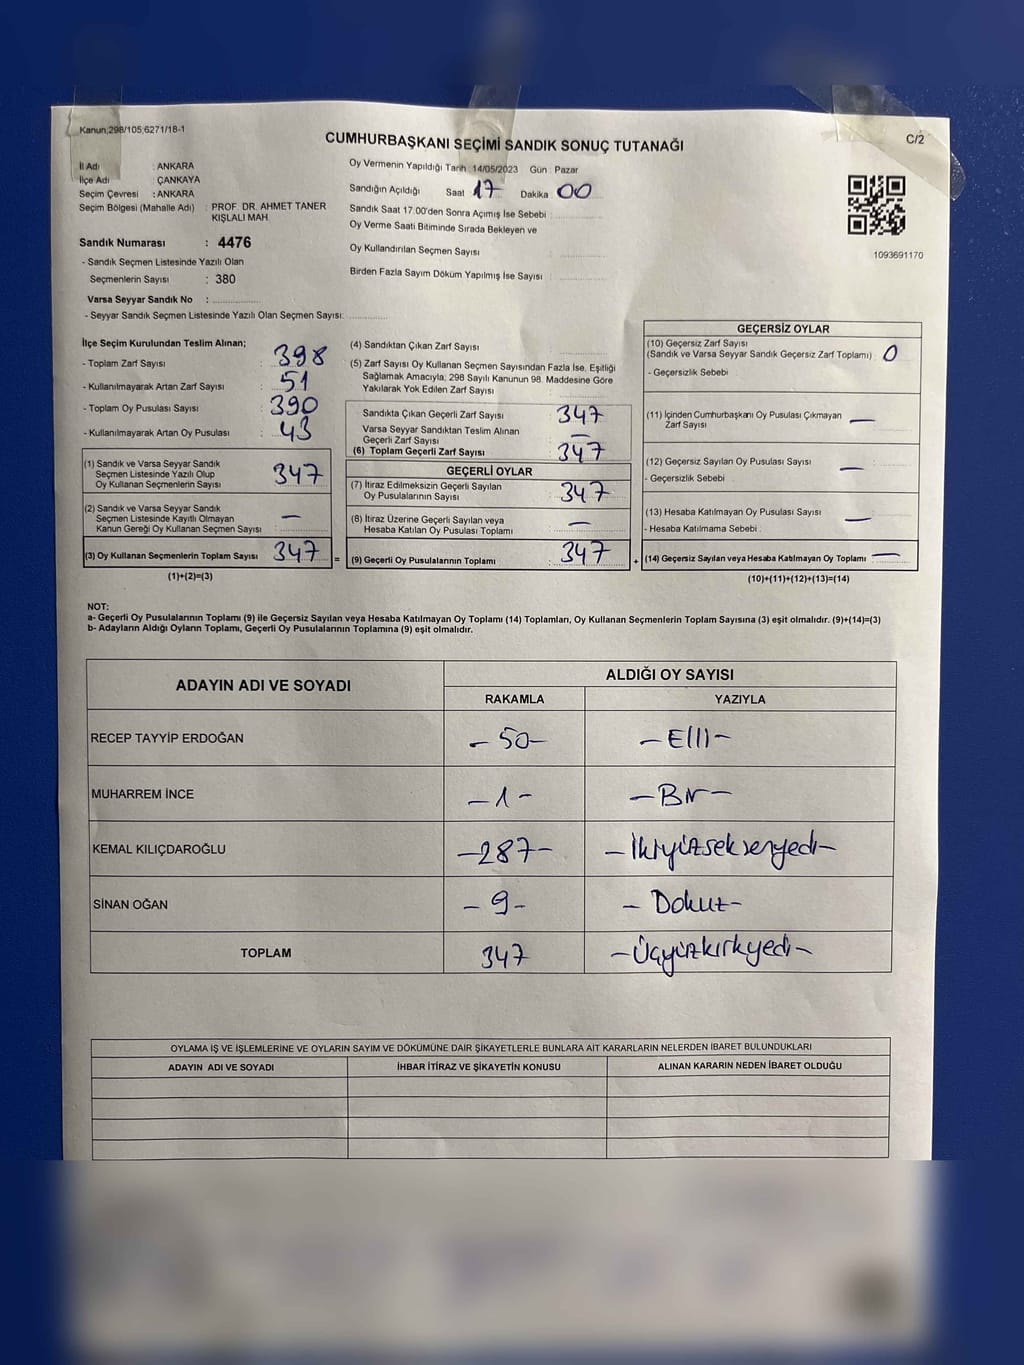 Kanun;298/105;6271/18-1
C/2
CUMHURBAŞKANI SEÇİMİ SANDIK SONUÇ TUTANAĞI
İl Adı : ANKARA
İlçe Adı : ÇANKAYA
Seçim Çevresi : ANKARA
Seçim Bölgesi (Mahalle Adı) : PROF. DR. AHMET TANER
KIŞLALI MAH.
Sandık Numarası : 4476
- Sandık Seçmen Listesinde Yazılı Olan
Seçmenlerin Sayısı : 380
Varsa Seyyar Sandık No :
- Seyyar Sandık Seçmen Listesinde Yazılı Olan Seçmen Sayısı:
Oy Vermenin Yapıldığı Tarih : 14/05/2023 Gün : Pazar
Sandığın Açıldığı Saat 17 Dakika 00
Sandık Saat 17:00'den Sonra Açımış İse Sebebi :
Oy Verme Saati Bitiminde Sırada Bekleyen ve
Oy Kullandırılan Seçmen Sayısı :
Birden Fazla Sayım Döküm Yapılmış İse Sayısı :
1093691170
İlçe Seçim Kurulundan Teslim Alınan;
- Toplam Zarf Sayısı : 398
- Kullanılmayarak Artan Zarf Sayısı : 51
- Toplam Oy Pusulası Sayısı : 390
- Kullanılmayarak Artan Oy Pusulası : 43
(1) Sandık ve Varsa Seyyar Sandık
Seçmen Listesinde Yazılı Olup
Oy Kullanan Seçmenlerin Sayısı : 347
(2) Sandık ve Varsa Seyyar Sandık
Seçmen Listesinde Kayıtlı Olmayan
Kanun Gereği Oy Kullanan Seçmen Sayısı : —
(3) Oy Kullanan Seçmenlerin Toplam Sayısı : 347
(1)+(2)=(3)
=
(4) Sandıktan Çıkan Zarf Sayısı :
(5) Zarf Sayısı Oy Kullanan Seçmen Sayısından Fazla İse, Eşitliği
Sağlamak Amacıyla; 298 Sayılı Kanunun 98. Maddesine Göre
Yakılarak Yok Edilen Zarf Sayısı :
Sandıkta Çıkan Geçerli Zarf Sayısı : 347
Varsa Seyyar Sandıktan Teslim Alınan
Geçerli Zarf Sayısı : —
(6) Toplam Geçerli Zarf Sayısı : 347
GEÇERLİ OYLAR
(7) İtiraz Edilmeksizin Geçerli Sayılan
Oy Pusulalarının Sayısı : 347
(8) İtiraz Üzerine Geçerli Sayılan veya
Hesaba Katılan Oy Pusulası Toplamı : —
(9) Geçerli Oy Pusulalarının Toplamı : 347
+
GEÇERSİZ OYLAR
(10) Geçersiz Zarf Sayısı
(Sandık ve Varsa Seyyar Sandık Geçersiz Zarf Toplamı) : 0
- Geçersizlik Sebebi :
(11) İçinden Cumhurbaşkanı Oy Pusulası Çıkmayan
Zarf Sayısı : —
(12) Geçersiz Sayılan Oy Pusulası Sayısı : —
- Geçersizlik Sebebi :
(13) Hesaba Katılmayan Oy Pusulası Sayısı : —
- Hesaba Katılmama Sebebi :
(14) Geçersiz Sayılan veya Hesaba Katılmayan Oy Toplamı : —
(10)+(11)+(12)+(13)=(14)
NOT:
a- Geçerli Oy Pusulalarının Toplamı (9) ile Geçersiz Sayılan veya Hesaba Katılmayan Oy Toplamı (14) Toplamları, Oy Kullanan Seçmenlerin Toplam Sayısına (3) eşit olmalıdır. (9)+(14)=(3)
b- Adayların Aldığı Oyların Toplamı, Geçerli Oy Pusulalarının Toplamına (9) eşit olmalıdır.
ADAYIN ADI VE SOYADI
ALDIĞI OY SAYISI
RAKAMLA YAZIYLA
RECEP TAYYİP ERDOĞAN - 50 - - Elli -
MUHARREM İNCE - 1 - - Bir -
KEMAL KILIÇDAROĞLU - 287 - - İkiyüzseksenyedi -
SİNAN OĞAN - 9 - - Dokuz -
TOPLAM 347 - Üçyüzkırkyedi -
OYLAMA İŞ VE İŞLEMLERİNE VE OYLARIN SAYIM VE DÖKÜMÜNE DAİR ŞİKAYETLERLE BUNLARA AİT KARARLARIN NELERDEN İBARET BULUNDUKLARI
ADAYIN ADI VE SOYADI İHBAR İTİRAZ VE ŞİKAYETİN KONUSU ALINAN KARARIN NEDEN İBARET OLDUĞU